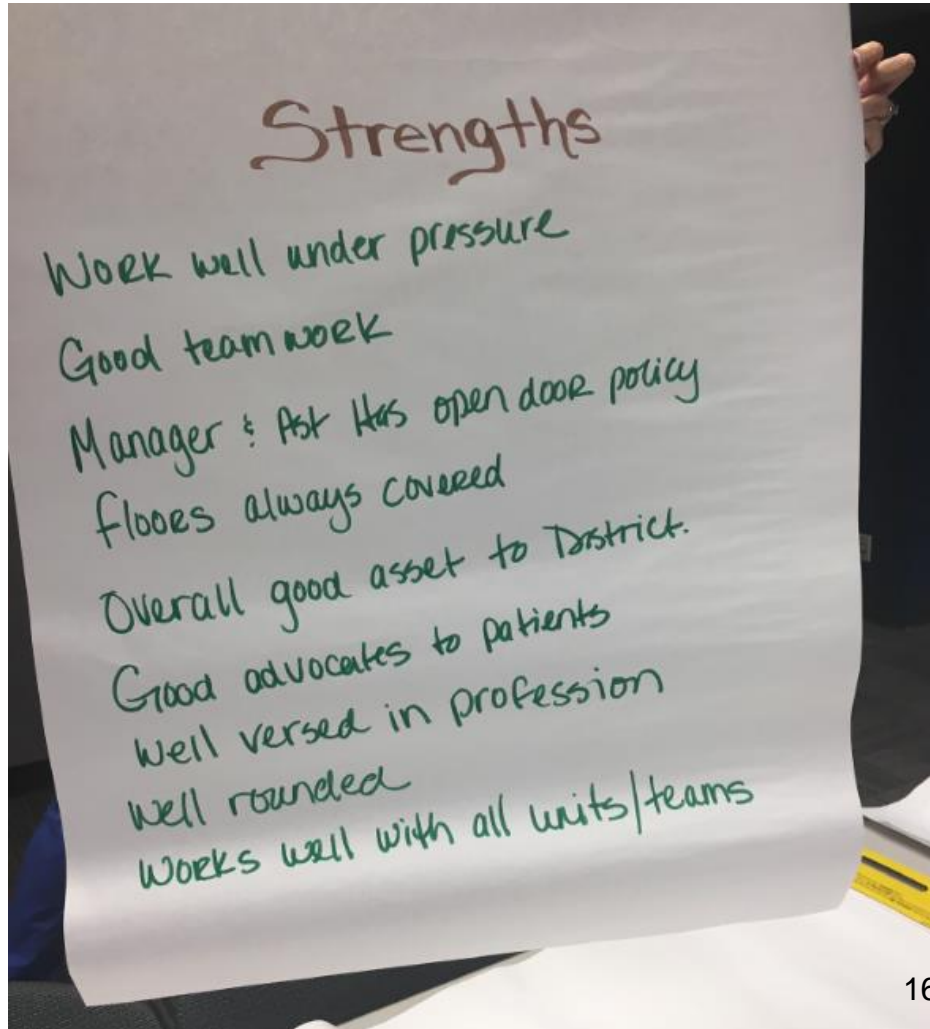 Strengths
Work well under pressure
Good teamwork
Manager & Ast Has open door policy
floors always covered
Overall good asset to District.
Good advocates to patients
Well versed in profession
Well rounded
Works well with all units/teams
16